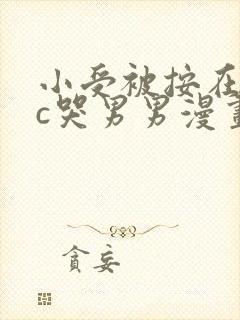 小受被按在
c哭男男漫畫
貪妄